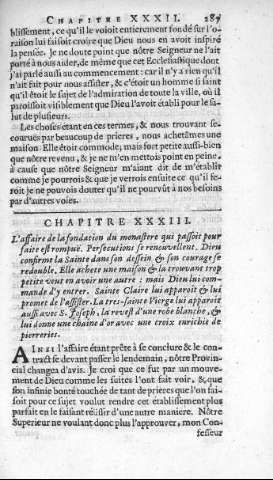 CHAPITRE XXXII. 287
blissement, ce qu'il le voioit entierement fondé sur l'o-
raison lui faisoit croire que Dieu nous en avoit inspiré
la pensée. Je ne doute point que nôtre Seigneur ne l'ait
porté à nous aider, de même que cet Ecclesiastique dont
j'ai parlé aussi au commencement : car il n'y a rien qu'il
n'ait fait pour nous assister, & c'étoit un homme si saint
qu'il étoit le sujet de l'admiration de toute la ville, où il
paroissoit visiblement que Dieu l'avoit établi pour le sa-
lut de plusieurs.
Les choses étant en ces termes, & nous trouvant se-
couruës par beaucoup de prieres, nous achetâmes une
maison. Elle étoit commode, mais fort petite aussi-bien
que nôtre revenu, & je ne m'en mettois point en peine,
à cause que nôtre Seigneur m'aiant dit de m'établir
comme je pourrois & que je verrois ensuite ce qu'il fe-
roit je ne pouvois douter qu'il ne pourvût à nos besoins
par d'autres voies.
CHAPITRE XXXIII.
L'affaire de la fondation du monastere qui passoit pour
faite est rompuë. Persecutions se renouvellent. Dieu
confirme la Sainte dans son dessein & son courage se
redouble. Elle achete une maison & la trouvant trop
petite veut en avoir une autre : mais Dieu lui com-
mande d'y entrer. Sainte Claire lui apparoît & lui
promet de l'assister. La tres-sainte Vierge lui apparoît
aussi avec S. Joseph, la revest d'une robe blanche, &
lui donne une chaîne d'or avec une croix enrichie de
pierreries.
AINSI l'affaire étant prête à se conclure & le con-
tract se devant passer le lendemain, nôtre Provin-
cial changea d'avis. Je croi que ce fut par un mouve-
ment de Dieu comme les suites l'ont fait voir, & que
son infinie bonté touchée de tant de prieres que l'on fai-
soit pour ce sujet voulut rendre cet établissement plus
parfait en le faisant réüssir d'une autre maniere. Nôtre
Superieur ne voulant donc plus l'approuver, mon Con-
fesseur